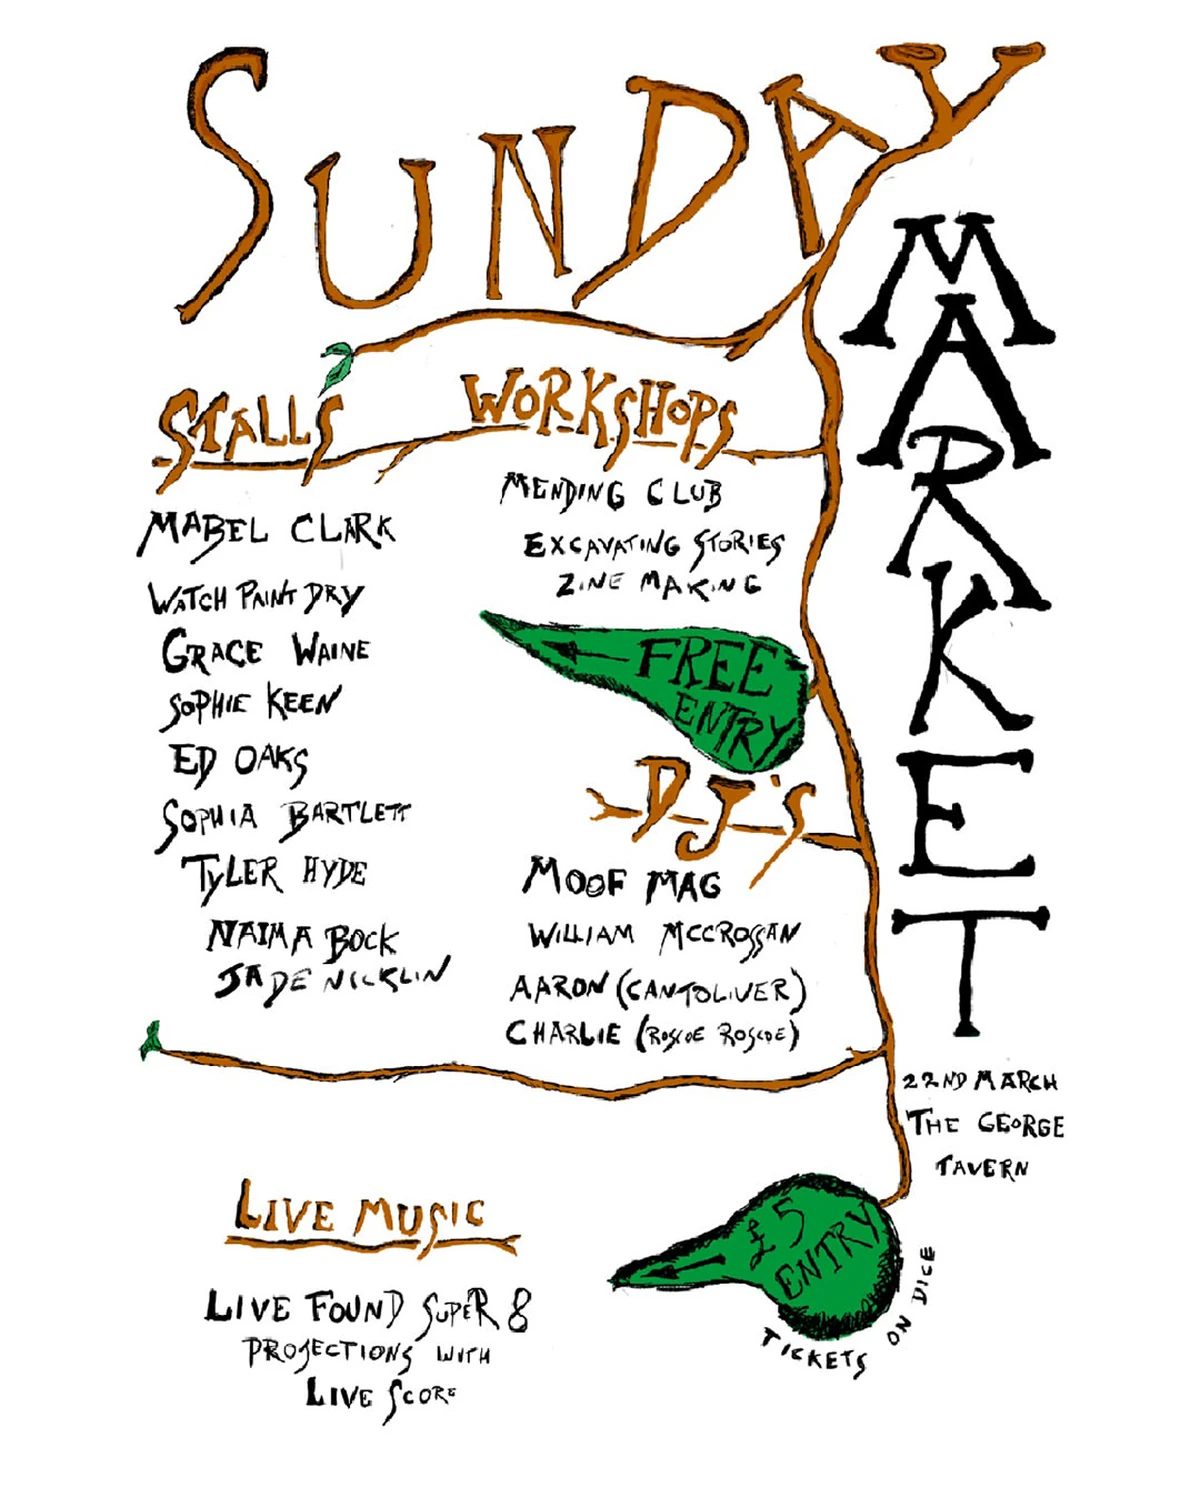 SUNDAY
MARKET
STALLS
MABEL CLARK
WATCH PAINT DRY
GRACE WAINE
SOPHIE KEEN
ED OAKS
SOPHIA BARTLETT
TYLER HYDE
NAIMA BOCK
JADE NICKLIN
WORKSHOPS
MENDING CLUB
EXCAVATING STORIES
ZINE MAKING
FREE
ENTRY
DJ'S
MOOF MAG
WILLIAM MCCROSSAN
AARON (CANTOLIVER)
CHARLIE (ROSCOE ROSCOE)
22ND MARCH
THE GEORGE
TAVERN
LIVE MUSIC
LIVE FOUND SUPER 8
PROJECTIONS WITH
LIVE SCORE
£5
ENTRY
TICKETS ON DICE